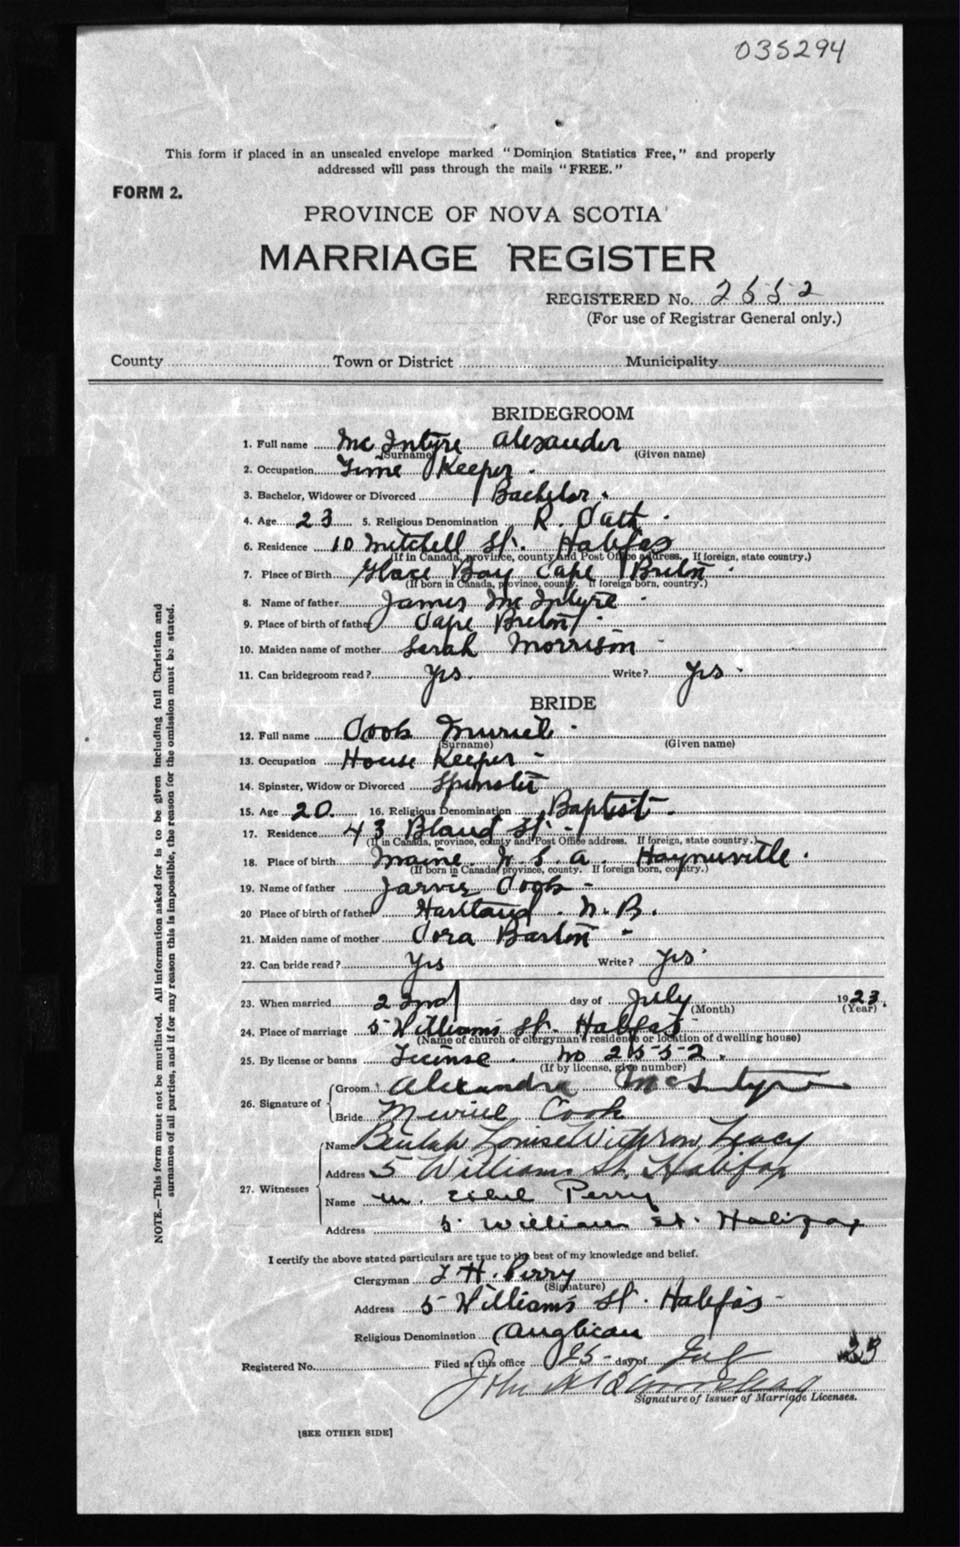 035294
This form if placed in an unsealed envelope marked "Dominion Statistics Free," and properly
addressed will pass through the mails "FREE."
FORM 2.
PROVINCE OF NOVA SCOTIA
MARRIAGE REGISTER
REGISTERED No. 2552
(For use of Registrar General only.)
County Town or District Municipality
BRIDEGROOM
1. Full name Mc Intyre Alexander
(Surname) (Given name)
2. Occupation Time Keeper
3. Bachelor, Widower or Divorced Bachelor
4. Age 23 5. Religious Denomination R. Cath
6. Residence 10 Mitchell St. Halifax
(If in Canada, province, county and Post Office address. If foreign, state country.)
7. Place of Birth Glace Bay Cape Breton
(If born in Canada, province, county. If foreign born, country.)
8. Name of father James Mc Intyre
9. Place of birth of father Cape Breton
10. Maiden name of mother Serah Morrison
11. Can bridegroom read? Yes. Write? Yes
BRIDE
12. Full name Cook Muriel
(Surname) (Given name)
13. Occupation House Keeper
14. Spinster, Widow or Divorced Spinster
15. Age 20. 16. Religious Denomination Baptist
17. Residence 43 Bland St.
(If in Canada, province, county and Post Office address. If foreign, state country.)
18. Place of birth Maine U.S.A. Haynesville.
(If born in Canada, province, county. If foreign born, country.)
19. Name of father Jarvis Cook
20 Place of birth of father Hartland. N.B.
21. Maiden name of mother Cora Barton
22. Can bride read? Yes Write? Yes
23. When married 22nd day of July 1923.
(Month) (Year)
24. Place of marriage 5 Williams St. Halifax
(Name of church or clergyman's residence or location of dwelling house)
25. By license or banns License. No 2552.
(If by license, give number)
26. Signature of
Groom Alexandra McIntyre
Bride Muriel Cook
27. Witnesses
Name Beulah Louise Withrow Tracy
Address 5 Williams St. Halifax
Name M. Ethel Perry
Address 5 William St. Halifax
I certify the above stated particulars are true to the best of my knowledge and belief.
Clergyman T. H. Perry
(Signature)
Address 5 Williams St. Halifax
Religious Denomination Anglican
Registered No. Filed at this office 25 day of Jul 23
John
Signature of Issuer of Marriage Licenses.
[SEE OTHER SIDE]
NOTE.—This form must not be mutilated. All information asked for is to be given including full Christian and
surnames of all parties, and if for any reason this is impossible, the reason for the omission must be stated.